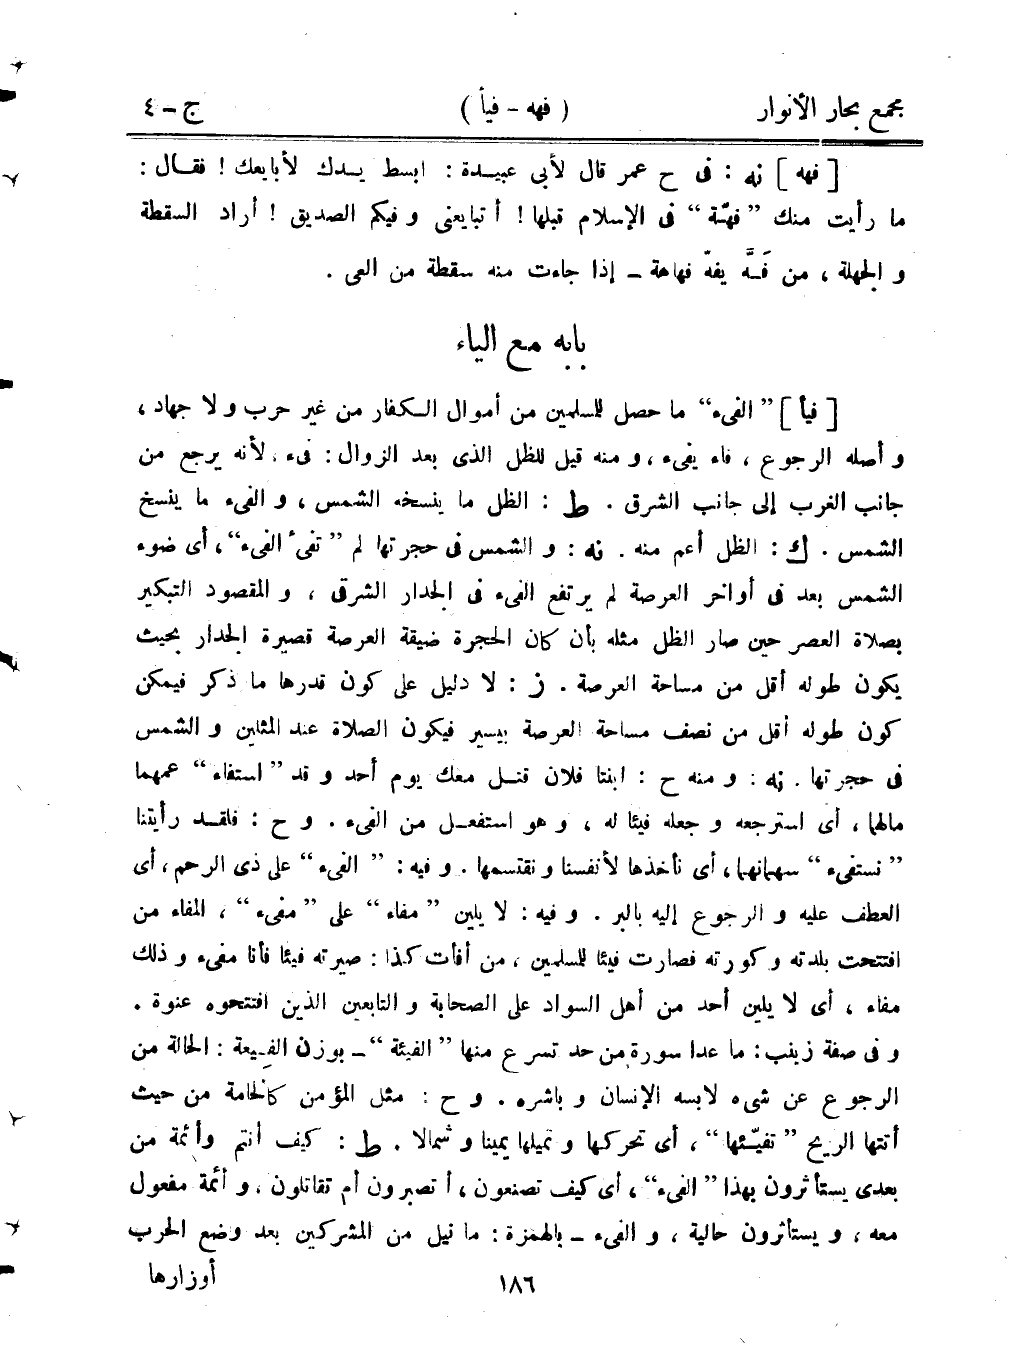 مجمع بحار الأنوار ( فهه - فيأ ) ج - ٤
[ فهه ] نه : فى ح عمر قال لأبى عبيدة : ابسط يدك لأبايعك ! فقال :
ما رأيت منك ” فهّة “ فى الإسلام قبلها ! أ تبايعنى و فيكم الصديق ! أراد السقطة
و الجهلة ، من فَهَّ يفهّ فهاهة ــ إذا جاءت منه سقطة من العى .
بابه مع الياء
[ فيأ ] ” الفىء “ ما حصل للسلمين من أموال الكفار من غير حرب و لا جهاد ،
و أصله الرجوع ، فاء يفىء ، و منه قيل للظل الذى بعد الزوال : فىء ، لأنه يرجع من
جانب الغرب إلى جانب الشرق . ط : الظل ما ينسخه الشمس ، و الفىء ما ينسخ
الشمس . ك : الظل أعم منه . نه : و الشمس فى حجرتها لم ” تفىء الفىء “ ، أى ضوء
الشمس بعد فى أواخر العرصة لم يرتفع الفىء فى الجدار الشرقى ، و المقصود التبكير
بصلاة العصر حين صار الظل مثله بأن كان الحجرة ضيقة العرصة قصيرة الجدار بحيث
يكون طوله أقل من مساحة العرصة . ز : لا دليل على كون قدرها ما ذكر فيمكن
كون طوله أقل من نصف مساحة العرصة بيسير فيكون الصلاة عند المثلين و الشمس
فى حجرتها . نه : و منه ح : ابنتا فلان قتل معك يوم أحد و قد ” استفاء “ عمهما
مالهما ، أى استرجعه و جعله فيئا له ، و هو استفعل من الفىء . و ح : فلقد رأيتنا
” نستفىء “ سهمانهما ، أى نأخذها لأنفسنا و نقتسمها . و فيه : ” الفىء “ على ذى الرحم ، أى
العطف عليه و الرجوع إليه بالبر . و فيه : لا يلين ” مفاء “ على ” مفىء “ ، المفاء من
افتتحت بلدته و كورته فصارت فيئا للسلمين ، من أفأت كذا : صيرته فيئا فأنا مفىء و ذلك
مفاء ، أى لا يلين أحد من أهل السواد على الصحابة و التابعين الذين افتتحوه عنوة .
و فى صفة زينب : ما عدا سورة من حد تسرع منها ” الفيئة “ ــ بوزن الفيعة : الحالة من
الرجوع عن شىء لابسه الإنسان و باشره . و ح : مثل المؤمن كالخامة من حيث
أتتها الريح ” تفيّئها “ ، أى تحركها و تميلها يمينا و شمالا . ط : كيف أنتم وأئمة من
بعدى يستأثرون بهذا ” الفىء “ ، أى كيف تصنعون ، أ تصبرون أم تقاتلون ، و أئمة مفعول
معه ، و يستأثرون حالية ، و الفىء ــ بالهمزة : ما نيل من المشركين بعد وضع الحرب
أوزارها
١٨٦